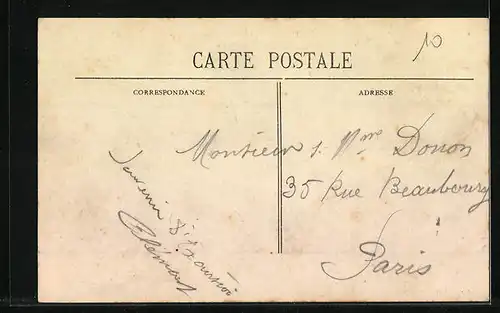 10
CARTE POSTALE
CORRESPONDANCE
ADRESSE
Monsieur & Mme Donon
35 Rue Beaubourg
Paris
Souvenir